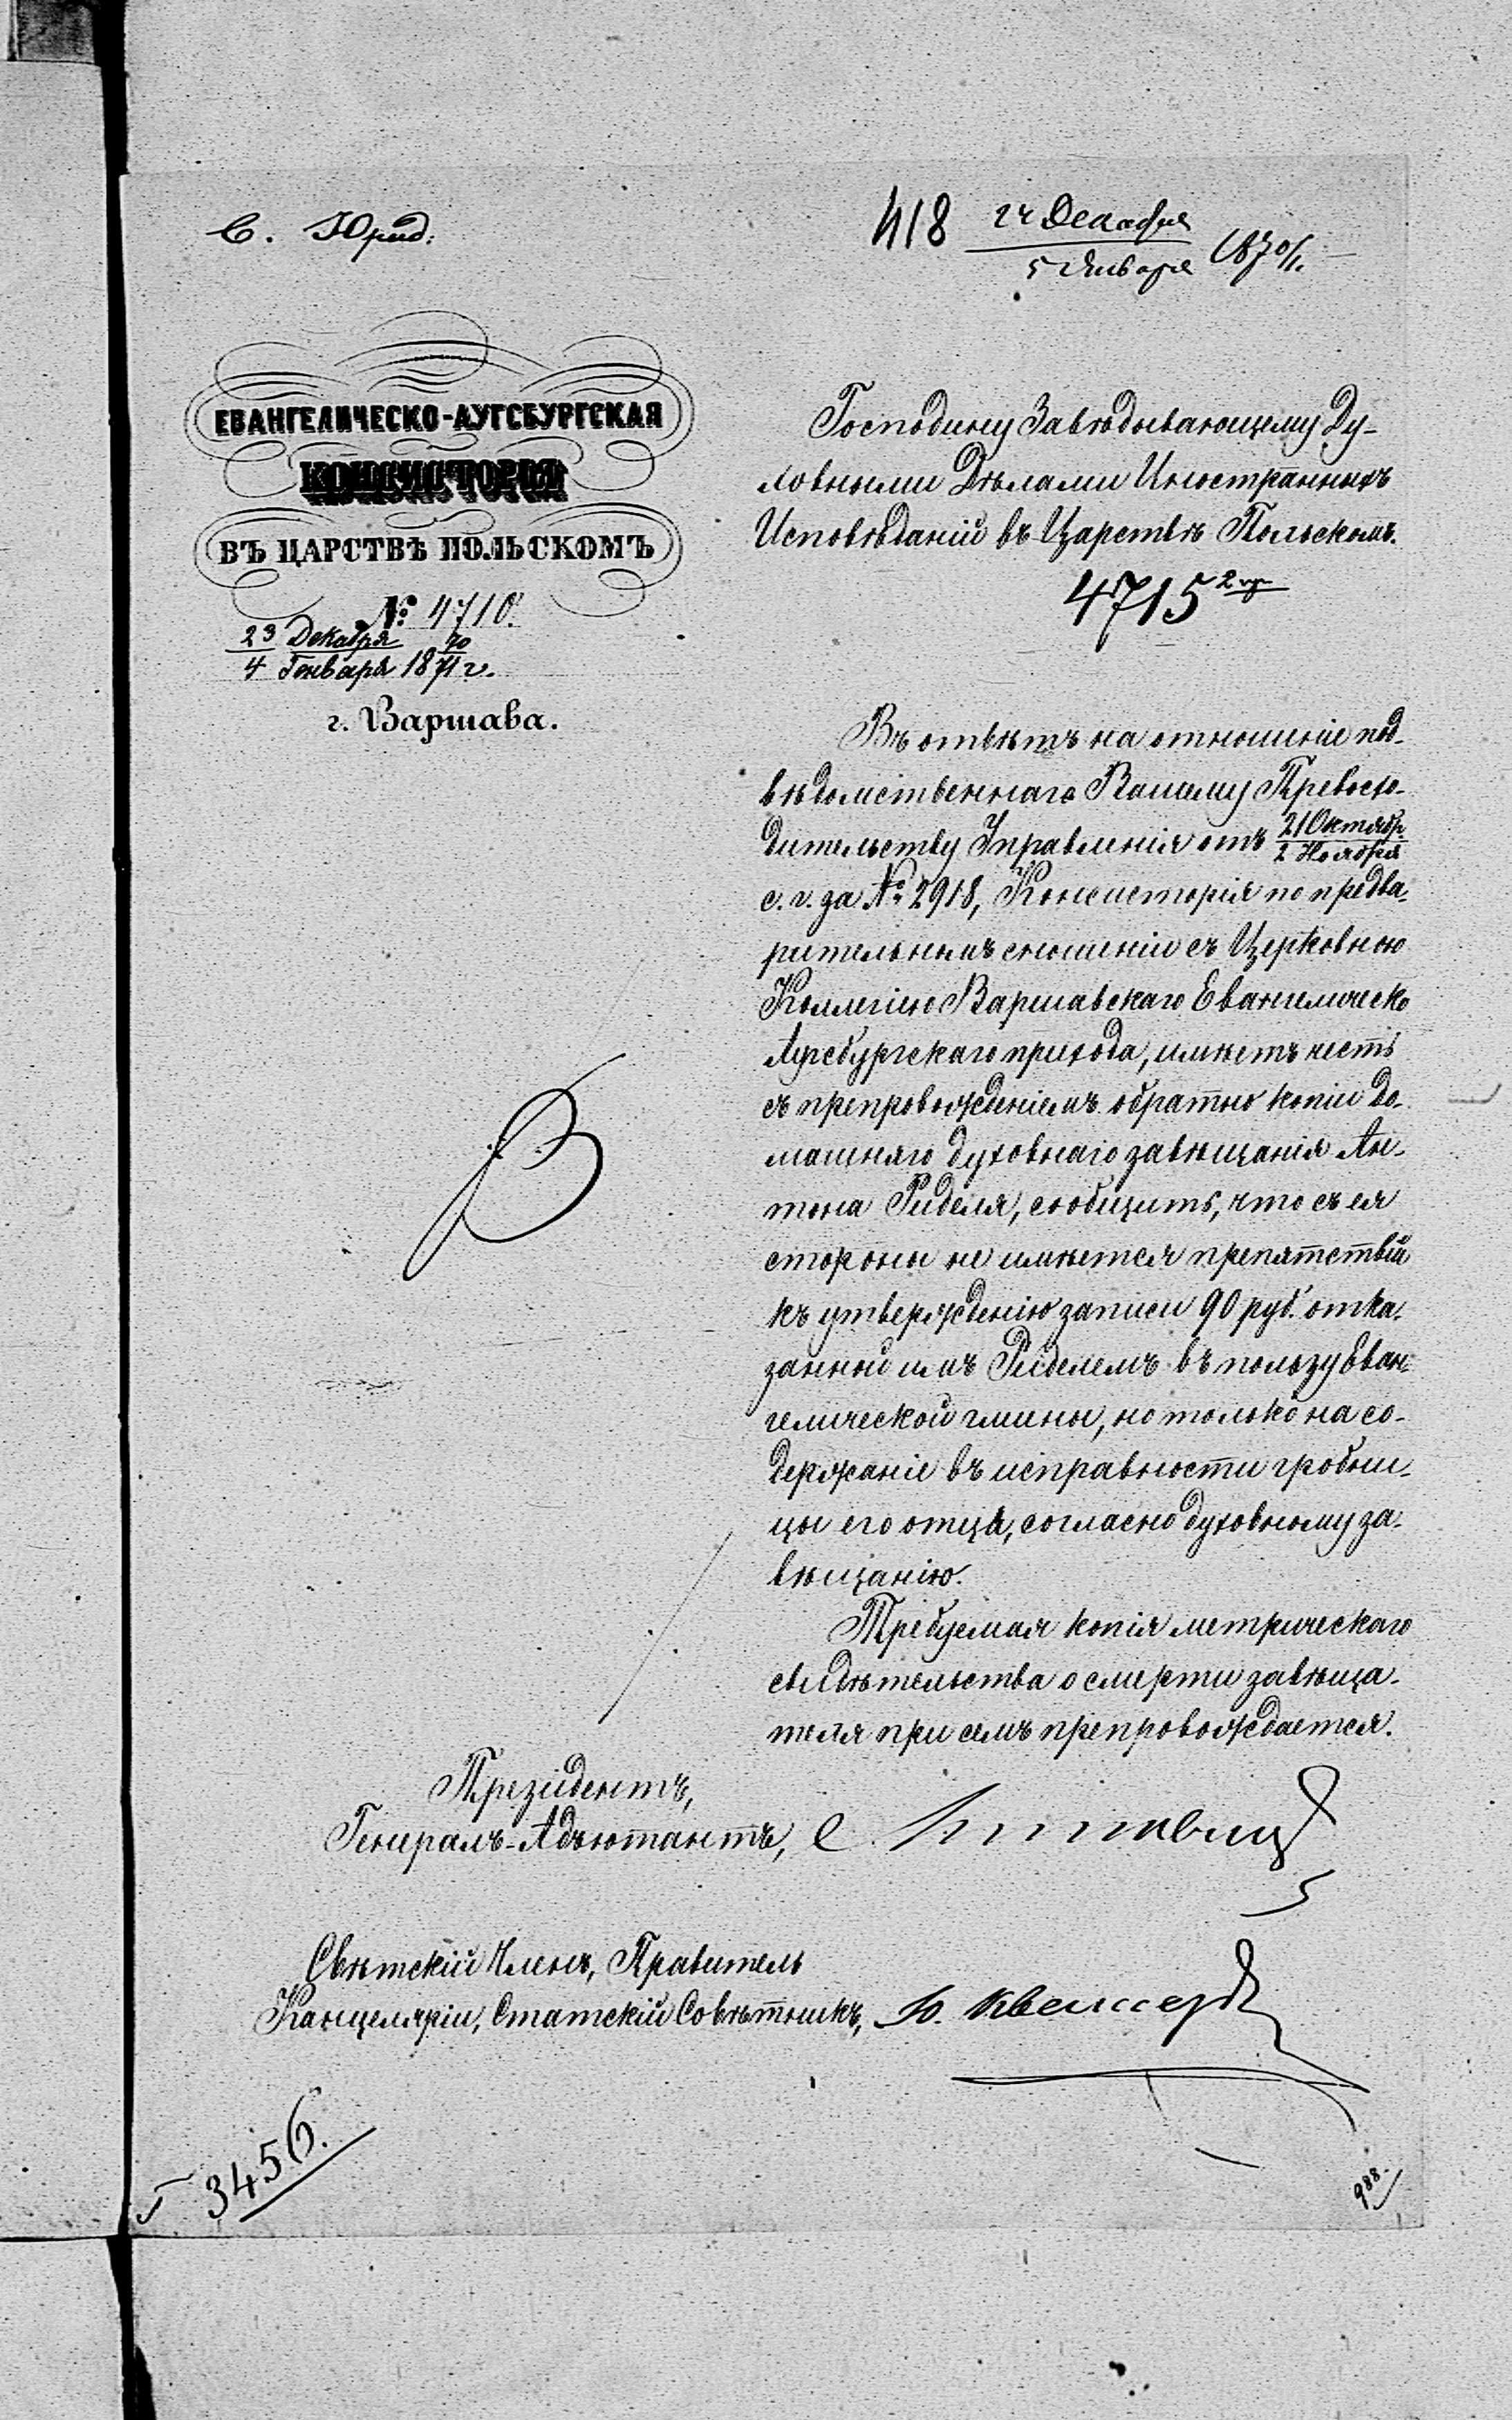 С. Юрид:
418 24 Декабря
5 Января 1870/1.
ЕВАНГЕЛИЧЕСКО-АУГСБУРГСКАЯ
КОНСИСТОРІЯ
ВЪ ЦАРСТВѢ ПОЛЬСКОМЪ
№: 4710.
23 Декабря 70
4 Генваря 1871 г.
г. Варшава.
Господину Завѣдывающему Ду-
ховными Дѣлами Иностранныхъ
Исповѣданій въ Царствѣ Польскомъ.
4715
Въ отвѣтъ на отношеніе под-
вѣдомственнаго Вашему Превосхо-
дительству Управленія отъ 21 Октябр.
2 Ноября
с. г. за № 2918, Консисторія по предва-
рительномъ сношеніи съ Церковною
Коллегіею Варшавскаго Евангелическо
Аугсбургскаго прихода, имѣетъ честь
съ препровожденіемъ обратно копіи до-
машняго духовнаго завѣщанія Ан-
тона Риделя, сообщить, что съ ея
стороны не имѣется препятствій
къ утвержденію записи 90 руб. отка-
занной имъ Риделемъ въ пользу Еван-
гелической гмины, но только на со-
держаніе въ исправности гробни-
цы его отца, согласно духовному за-
вѣщанію.
Требуемая копія метрическаго
свидѣтельства о смерти завѣща-
теля при семъ препровождается.
Презідентъ,
Генералъ-Адъютантъ,
Свѣтскій Членъ, Правитель
Канцеляріи, Статскій Совѣтникъ,
3456.
988.